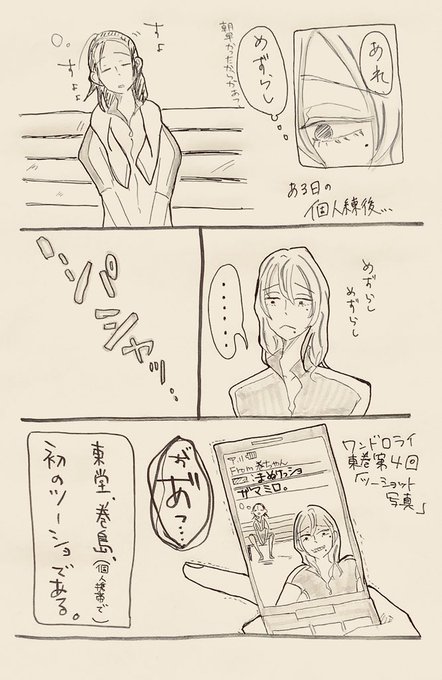 あれ
めずらし
ある日の
個人練後…
朝早かったからかあ?
すよ
すよ
めずらし
めずらし
……
パシャッ
ワンドロライ
東巻第4回
「ツーショット
写真」
From 巻ちゃん
まぬけッショ
ザマミロ。
がぁっ…
東堂、巻島、(個人携帯で)
初のツーショである。